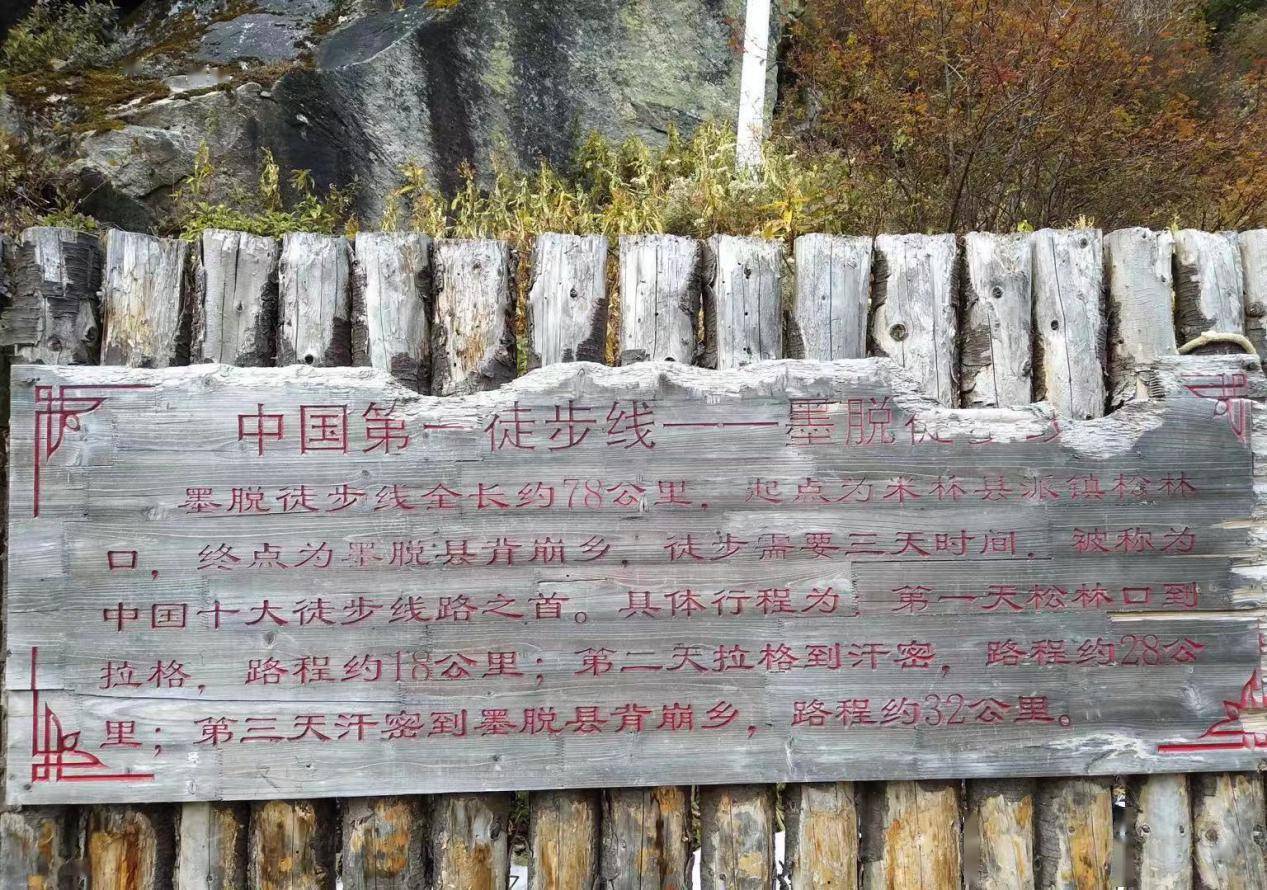 中国第一徒步线——墨脱徒步线
墨脱徒步线全长约78公里，起点为米林县派镇松林
口，终点为墨脱县背崩乡，徒步需要三天时间，被称为
中国十大徒步线路之首。具体行程为，第一天松林口到
拉格，路程约18公里；第二天拉格到汗密，路程约28公
里；第三天汗密到墨脱县背崩乡，路程约32公里。